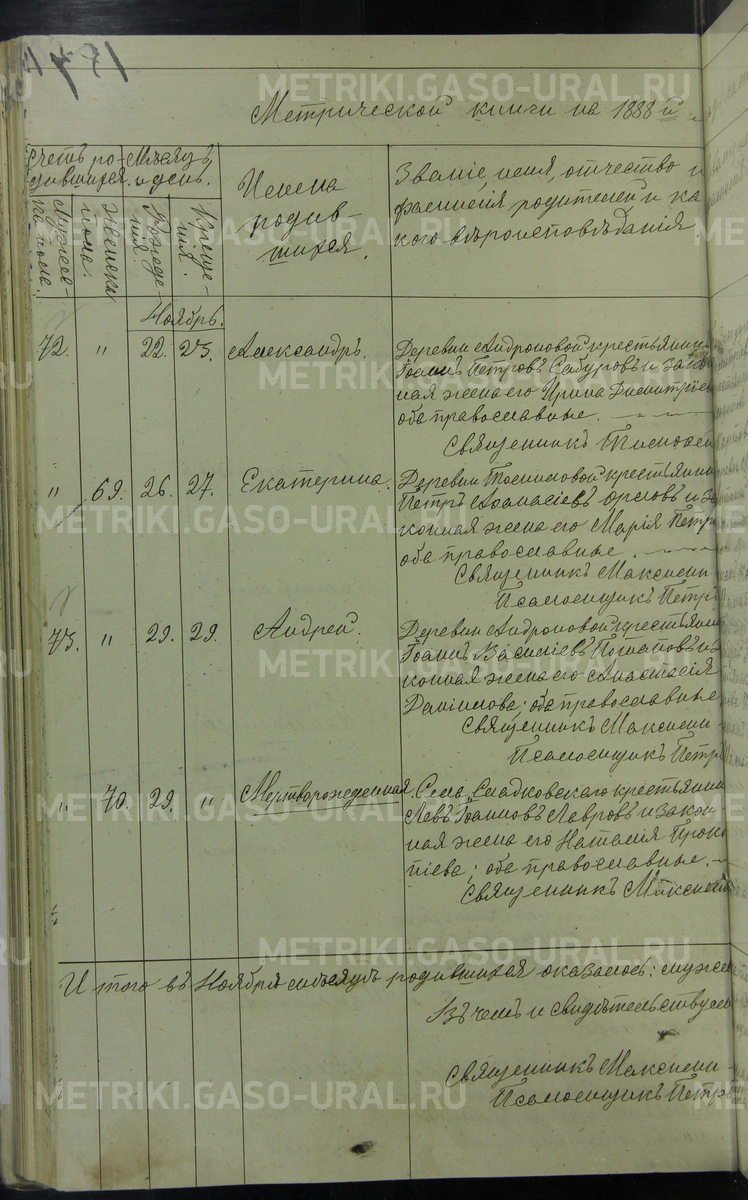 Метрической книги на 1888й
Счетъ ро-
дившихся.
Мѣсяцъ
и день.
Имена
родив-
шихся.
Званіе, имя, отчество и
фамилія родителей и ка
кого вѣроисповѣданія
Мужес-
ка пола.
Женска
пола.
Рожде-
нія.
Креще-
нія.
Ноябрь.
72. " 22. 25. Александръ. Деревни Андроновой крестьянин
Іоаннъ Петровъ Сабуровъ и закон
ная жена его Ирина Димитріев
оба православные.
Священникъ
" 69. 26. 27. Екатерина. Деревни крестьянин
Петръ Аѳанасіевъ Орловъ и за
конная жена его Марія Петр
оба православные.
Священникъ Максими
Псаломщикъ Петръ
73. " 29. 29. Андрей. Деревни Андроновой крестьянин
Іоаннъ Василіевъ Потаповъ и за
конная жена его Анастасія
Даніилова; оба православные
Священникъ Максими
Псаломщикъ Петр
" 70. 29. " Мертворожденная. Села Сладковскаго крестьянин
Левъ Іоанновъ Лавровъ и закон
ная жена его Наталія Проко
піева; оба православные.
Священникъ Максими
Итого въ Ноябрѣ мѣсяцѣ родившихся оказалось: муже
Въ чемъ и свидѣтельствуем
Священникъ Максими
Псаломщикъ Петръ
METRIKI.GASO-URAL.RU